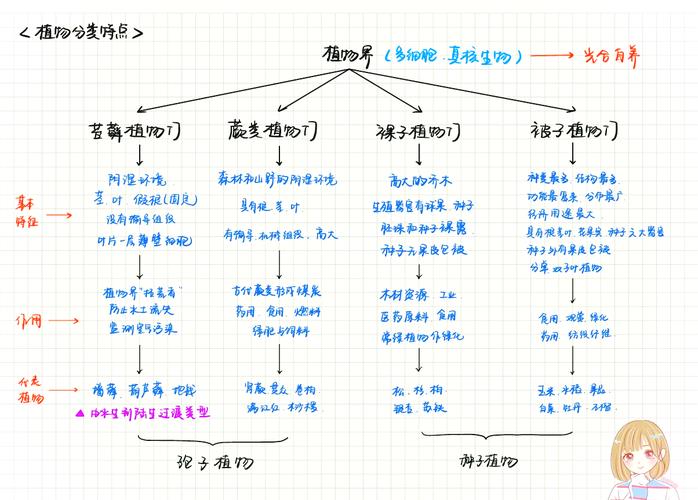 <植物分类特点>
植物界(多细胞.真核生物) 光合自养
苔藓植物门 蕨类植物门 裸子植物门 被子植物门
基本特征
阴湿环境
茎.叶 假根(固定)
没有输导组织
叶片一层薄壁细胞
森林和山野的阴湿环境
具有根.茎.叶
有输导.机械组织.高大
高大的乔木
生殖器官有球果.种子
胚珠和种子裸露
种子无果皮包被
种类最多.结构最
功能最 分布最广
用途最大
具有根茎叶.花果实种子六大器官
种子外有果皮包被
分单双子叶植物
作用
植物界"拓荒者"
防止水土流失
监测空气污染
古代蕨类形成煤炭
药用.食用.燃料
绿肥与饲料
木材资源.工业
医药原料.食用
常绿植物作绿化
食用.观赏.绿化
药用.纺织纤维
代表植物
墙藓.葫芦藓.地钱
▲由水生到陆生过渡类型
肾蕨.贯众.卷柏.
满江红.桫椤.
松.杉.柏.
银杏.苏铁
玉米.水稻.果松
白菜.牡丹.
孢子植物 种子植物